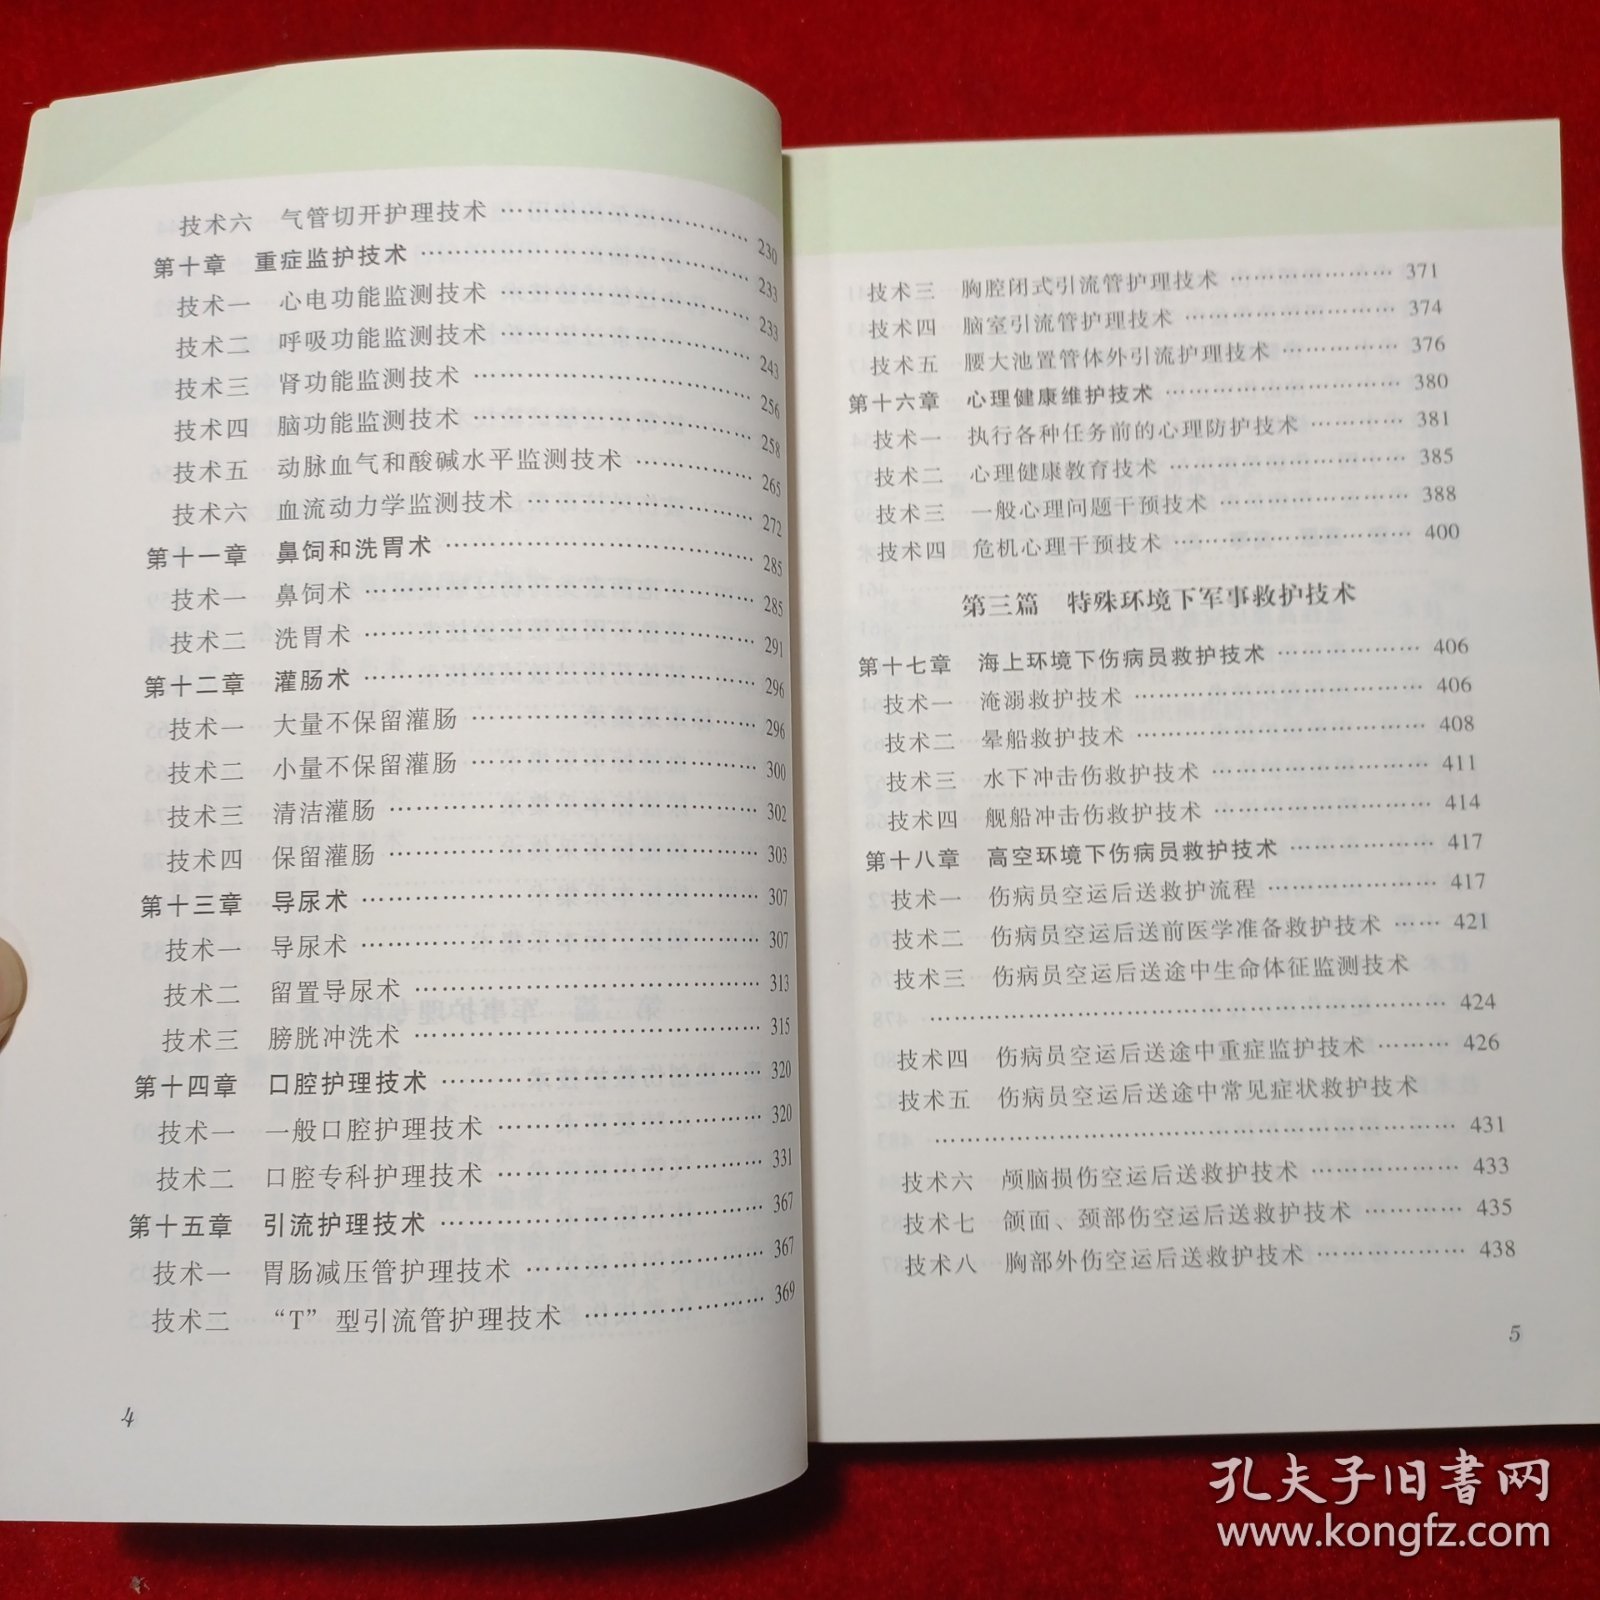 技术六 气管切开护理技术 …………………… 230
第十章 重症监护技术 …………………… 233
技术一 心电功能监测技术 …………………… 233
技术二 呼吸功能监测技术 …………………… 243
技术三 肾功能监测技术 …………………… 256
技术四 脑功能监测技术 …………………… 258
技术五 动脉血气和酸碱水平监测技术 …………… 265
技术六 血流动力学监测技术 …………………… 272
第十一章 鼻饲和洗胃术 …………………… 285
技术一 鼻饲术 …………………… 285
技术二 洗胃术 …………………… 291
第十二章 灌肠术 …………………… 296
技术一 大量不保留灌肠 …………………… 296
技术二 小量不保留灌肠 …………………… 300
技术三 清洁灌肠 …………………… 302
技术四 保留灌肠 …………………… 303
第十三章 导尿术 …………………… 307
技术一 导尿术 …………………… 307
技术二 留置导尿术 …………………… 313
技术三 膀胱冲洗术 …………………… 315
第十四章 口腔护理技术 …………………… 320
技术一 一般口腔护理技术 …………………… 320
技术二 口腔专科护理技术 …………………… 331
第十五章 引流护理技术 …………………… 367
技术一 胃肠减压管护理技术 …………………… 367
技术二 “T”型引流管护理技术 ………………… 369
4
技术三 胸腔闭式引流管护理技术 ……………… 371
技术四 脑室引流管护理技术 …………………… 374
技术五 腰大池置管体外引流护理技术 …………… 376
第十六章 心理健康维护技术 …………………… 380
技术一 执行各种任务前的心理防护技术 ………… 381
技术二 心理健康教育技术 …………………… 385
技术三 一般心理问题干预技术 ………………… 388
技术四 危机心理干预技术 …………………… 400
第三篇 特殊环境下军事救护技术
第十七章 海上环境下伤病员救护技术 …………… 406
技术一 淹溺救护技术 …………………… 406
技术二 晕船救护技术 …………………… 408
技术三 水下冲击伤救护技术 …………………… 411
技术四 舰船冲击伤救护技术 …………………… 414
第十八章 高空环境下伤病员救护技术 …………… 417
技术一 伤病员空运后送救护流程 ……………… 417
技术二 伤病员空运后送前医学准备救护技术 …… 421
技术三 伤病员空运后送途中生命体征监测技术
…………………………………………… 424
技术四 伤病员空运后送途中重症监护技术 ……… 426
技术五 伤病员空运后送途中常见症状救护技术
…………………………………………… 431
技术六 颅脑损伤空运后送救护技术 …………… 433
技术七 颌面、颈部伤空运后送救护技术 ………… 435
技术八 胸部外伤空运后送救护技术 …………… 438
5
孔夫子旧书网
www.kongfz.com